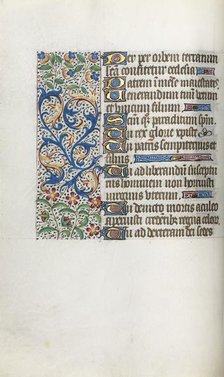 Te per orbem terrarum
sca confitetur ecclesia
Patrem immense maiestatis
Venerandum tuum verum
et unicum filium
Sanctum quoque paraclitum spm
Tu rex glorie xpiste
Tu patris sempiternus es
filius
Tu ad liberandum suscep
hominem non horruisti
virginis uterum
Tu devicto mortis aculeo
aperuisti credentibus regna celor
Tu ad dexteram dei sedes